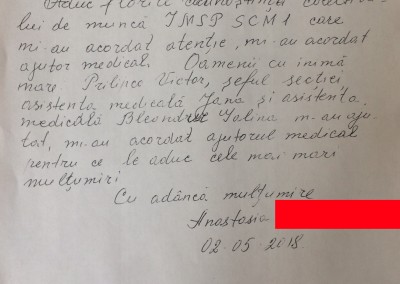 Aduc flori recunoștință colecti-
lui de muncă IMSP SCM1 care
mi-au acordat atenție, mi-au acordat
ajutor medical. Oameni cu inimă
mare Victor, șeful secției
asistenta medicală Jana și asistenta
medicală Galina m-au aju-
tat, mi-au acordat ajutorul medical
pentru ce le aduc cele mai mari
mulțumiri
Cu adâncă mulțumire
Anastasia
02.05.2018.